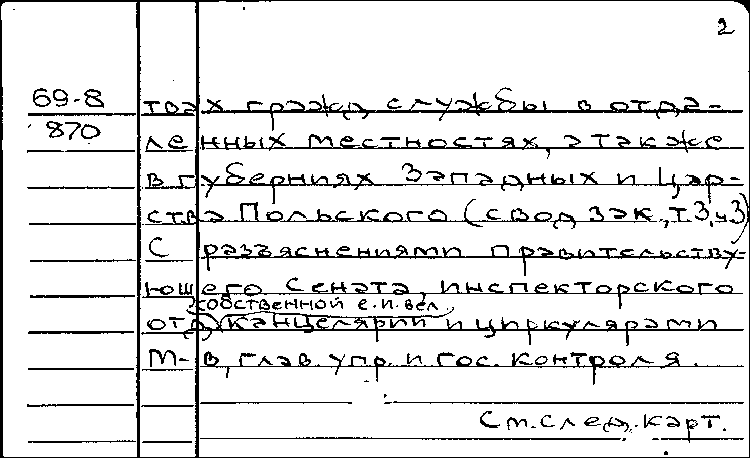 2
69-8
870
твах гражд. службы в отда-
ленных местностях, а также
в губерниях Западных и Цар-
ства Польского (свод зак., т.3, ч3)
С разъяснениями правительству-
ющего Сената, инспекторского
собственной е.и.вел.
отд. канцелярии и циркулярами
М-в, глав. упр. и гос. контроля.
См. след. карт.